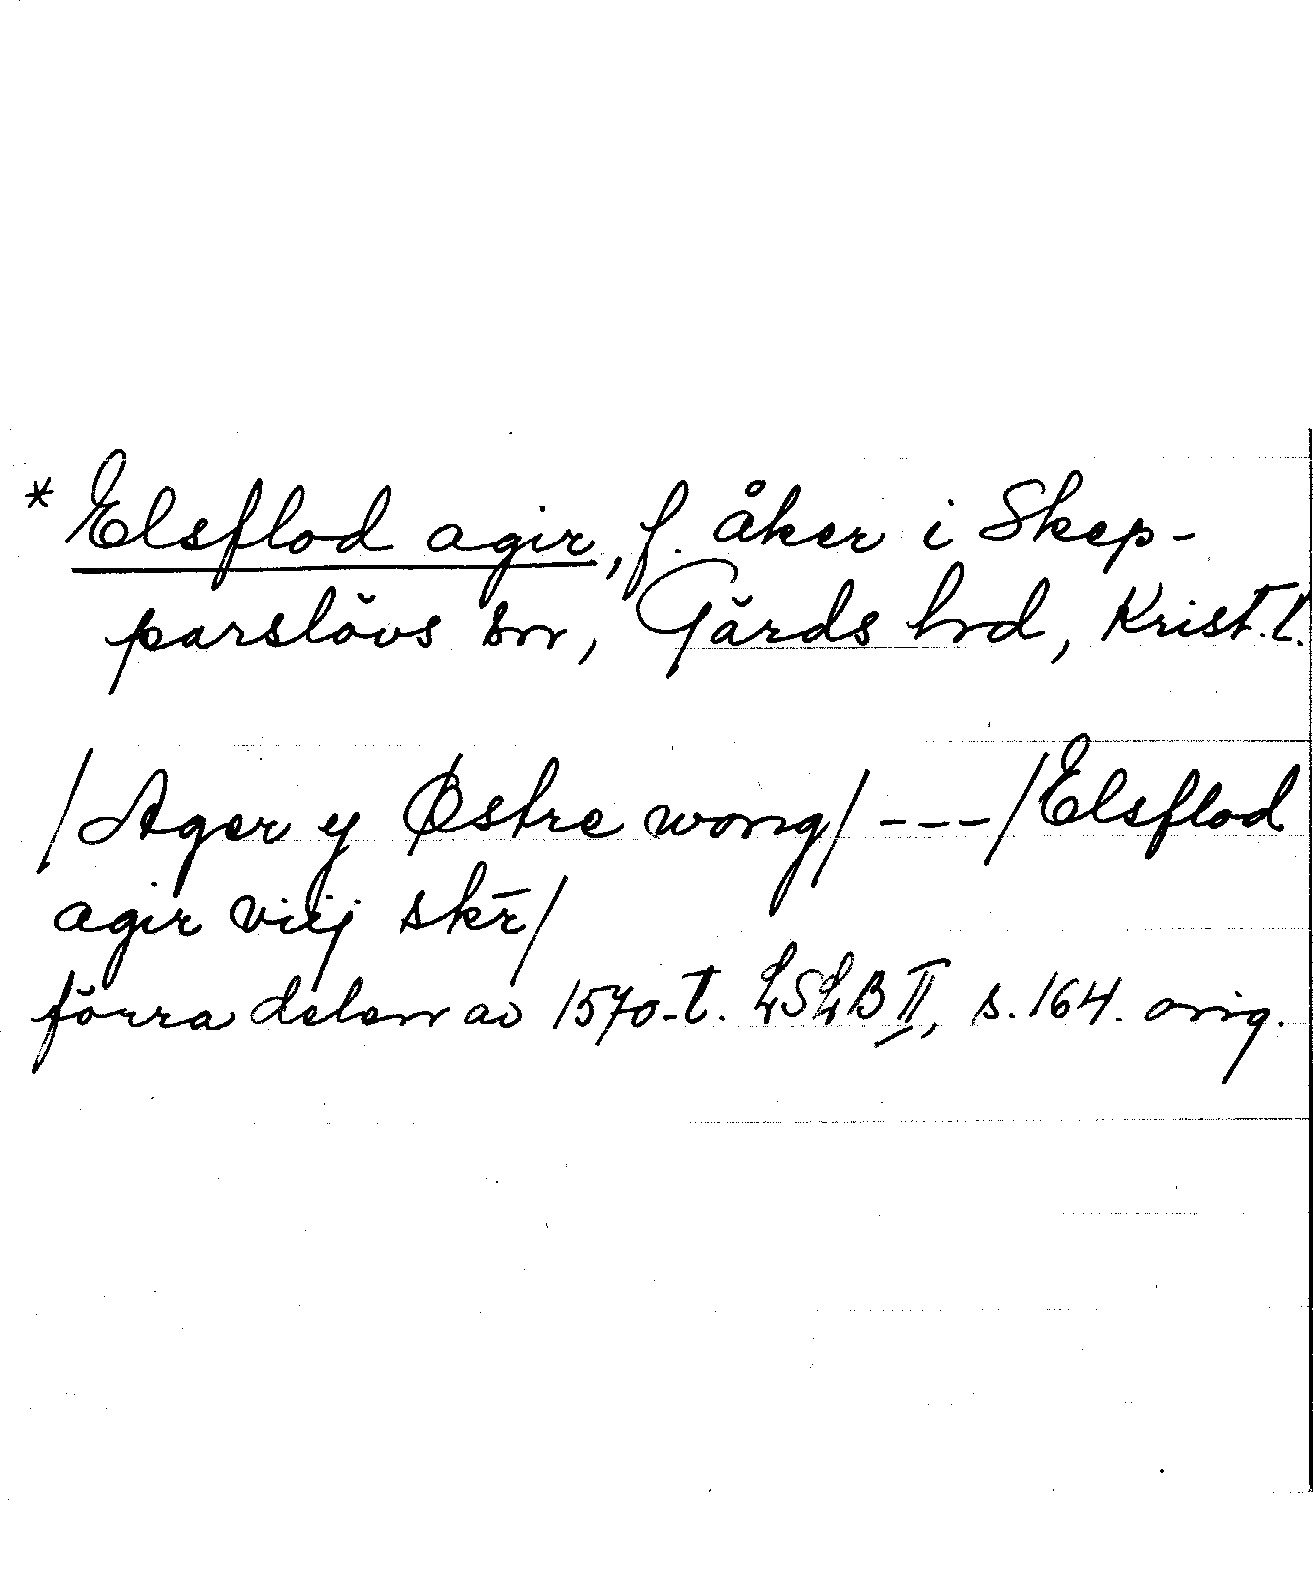 * Elsflod agir, f. åker i Skep-
parslövs sn, Gärds hrd, Krist. l.
/Ager y Østre wong/ --- /Elsflod
agir viij skr̄/
förra delen av 1570-t. LSLB II, s. 164. orig.